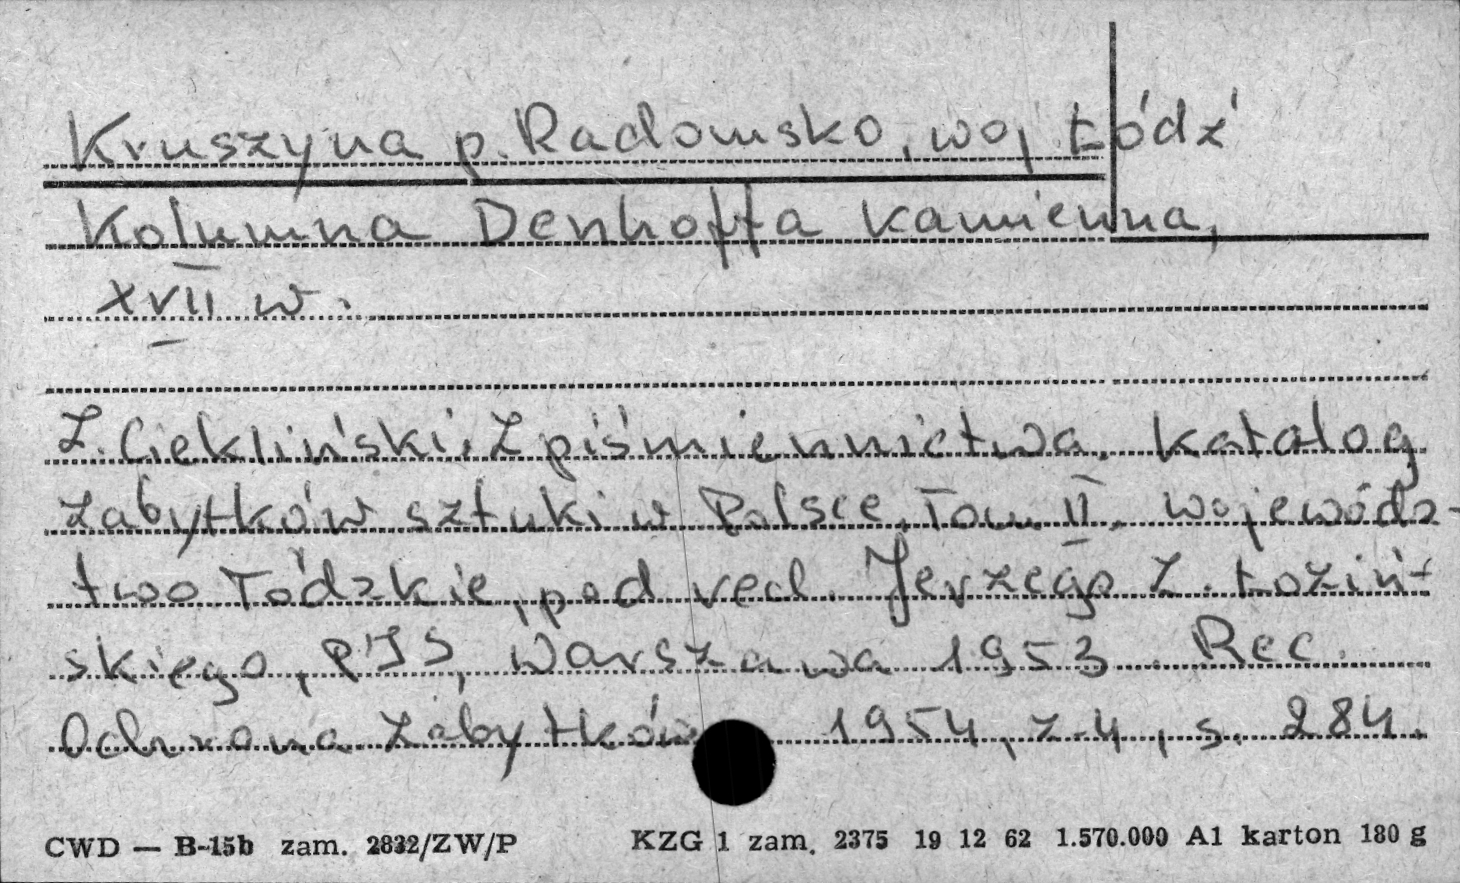 Kruszyna p. Radomsko, woj Łódź
Kolumna Denhoffa kamienna,
XVII w.
Z. Ciekliński, Z piśmiennictwa. Katalog
zabytków sztuki w Polsce, Tom II. wojewódz-
two Łódzkie, pod red. Jerzego Z. Łoziń-
skiego, PIS, Warszawa 1953. Rec.
Ochrona Zabytków 1954, z.4, s. 284.
CWD — B-15b zam. 2832/ZW/P KZG 1 zam. 2375 19 12 62 1.570.000 A1 karton 180 g